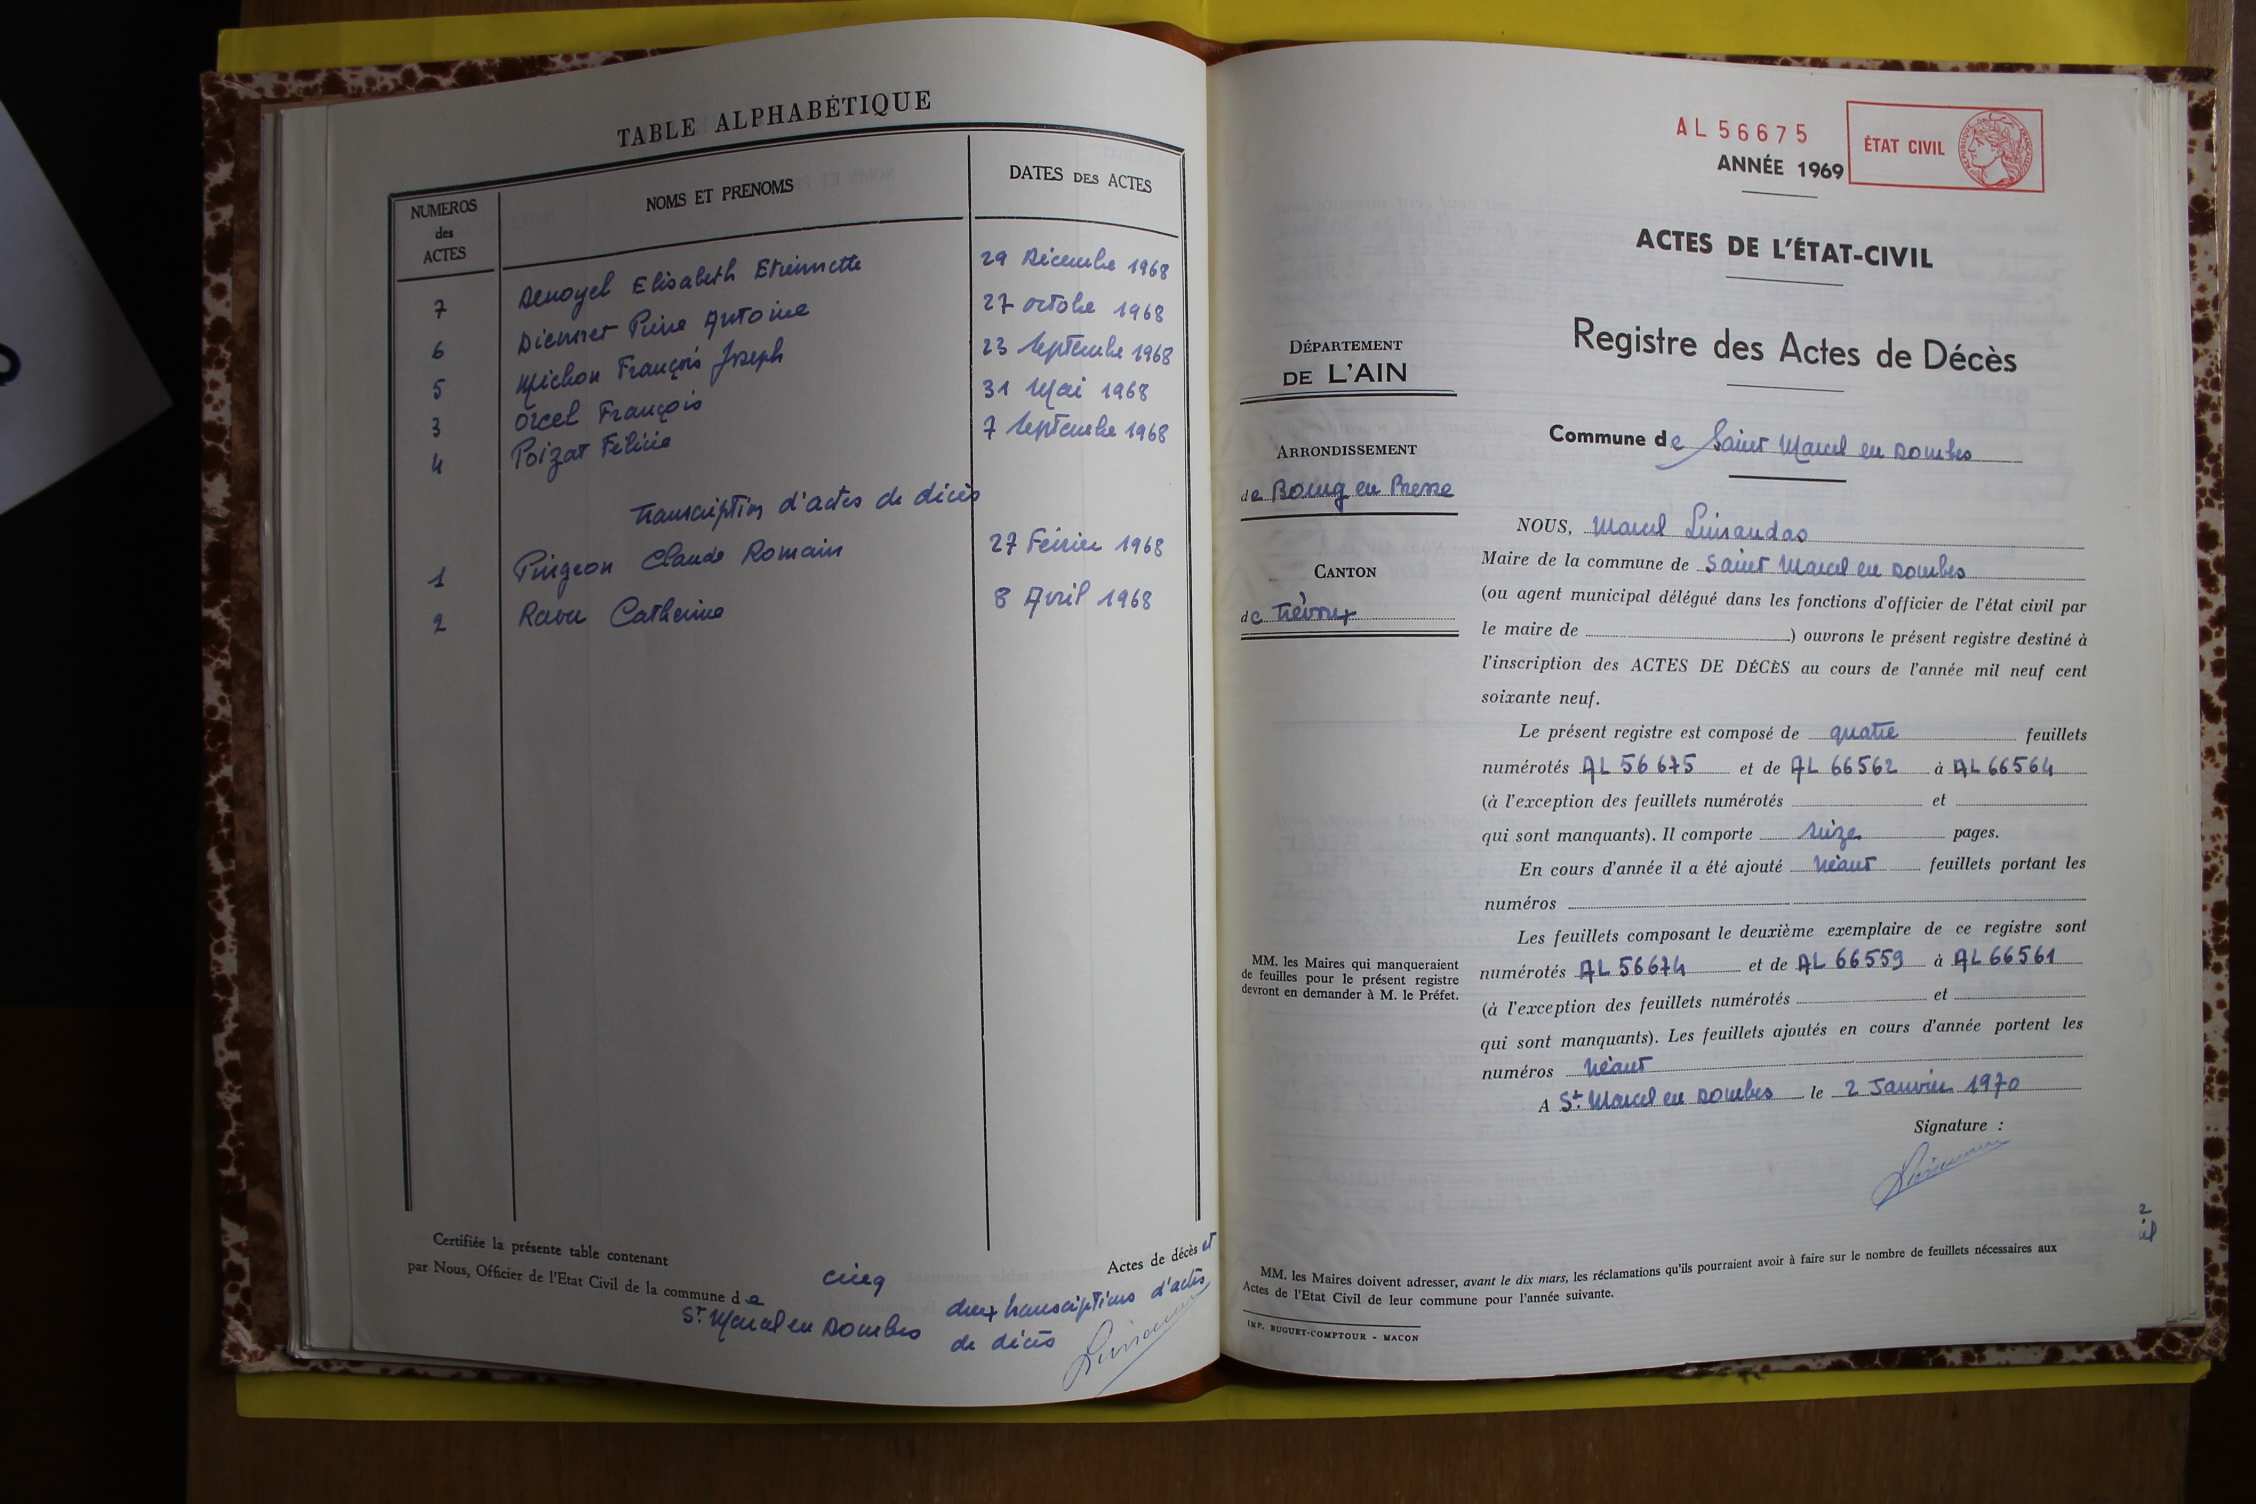 TABLE ALPHABÉTIQUE
NUMEROS des ACTES
NOMS ET PRENOMS
DATES DES ACTES
7 Denoyel Elisabeth Etiennette 29 Décembre 1968
6 Diemner Pierre Antoine 27 octobre 1968
5 Michon François Joseph 23 Septembre 1968
3 Orcel François 31 Mai 1968
4 Poizat Félicie 7 Septembre 1968
Transcription d'actes de décès
1 Pingeon Claude Romain 27 Février 1968
2 Ravu Catherine 8 Avril 1968
Certifiée la présente table contenant cinq Actes de décès et
par Nous, Officier de l'Etat Civil de la commune de deux transcriptions d'actes
St. Marcel en Dombes de décès
AL 56675
ANNÉE 1969
ÉTAT CIVIL
ACTES DE L'ÉTAT-CIVIL
Registre des Actes de Décès
Commune de Saint Marcel en Dombes
DÉPARTEMENT
DE L'AIN
ARRONDISSEMENT
de Bourg en Bresse
CANTON
de Trévoux
MM. les Maires qui manqueraient
de feuilles pour le présent registre
devront en demander à M. le Préfet.
NOUS, Marcel Luisandas
Maire de la commune de Saint Marcel en Dombes
(ou agent municipal délégué dans les fonctions d'officier de l'état civil par
le maire de ) ouvrons le présent registre destiné à
l'inscription des ACTES DE DÉCÈS au cours de l'année mil neuf cent
soixante neuf.
Le présent registre est composé de quatre feuillets
numérotés AL 56 675 et de AL 66562 à AL 66564
(à l'exception des feuillets numérotés et
qui sont manquants). Il comporte seize pages.
En cours d'année il a été ajouté néant feuillets portant les
numéros
Les feuillets composant le deuxième exemplaire de ce registre sont
numérotés AL 56674 et de AL 66559 à AL 66561
(à l'exception des feuillets numérotés et
qui sont manquants). Les feuillets ajoutés en cours d'année portent les
numéros néant
A St. Marcel en Dombes le 2 Janvier 1970
Signature :
MM. les Maires doivent adresser, avant le dix mars, les réclamations qu'ils pourraient avoir à faire sur le nombre de feuillets nécessaires aux
Actes de l'Etat Civil de leur commune pour l'année suivante.
IMP. BUGUET-COMPTOUR - MACON